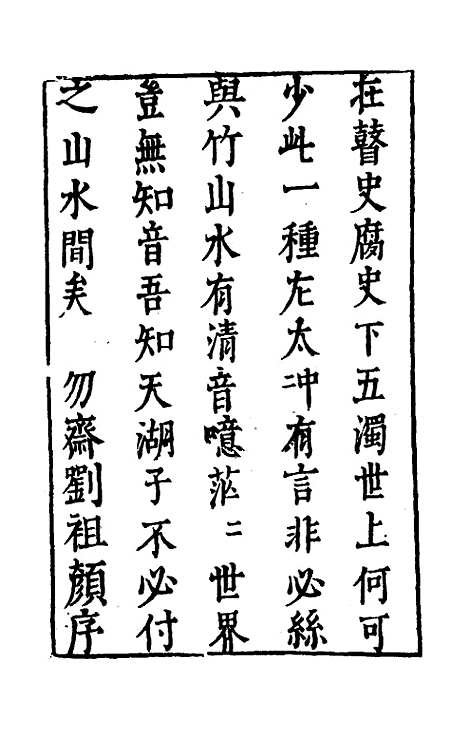 在瞽史腐史下五濁世上何可
少此一種左太冲有言非必絲
與竹山水有清音噫茫〻世界
豈無知音吾知天湖子不必付
之山水間矣　勿齋劉祖顏序